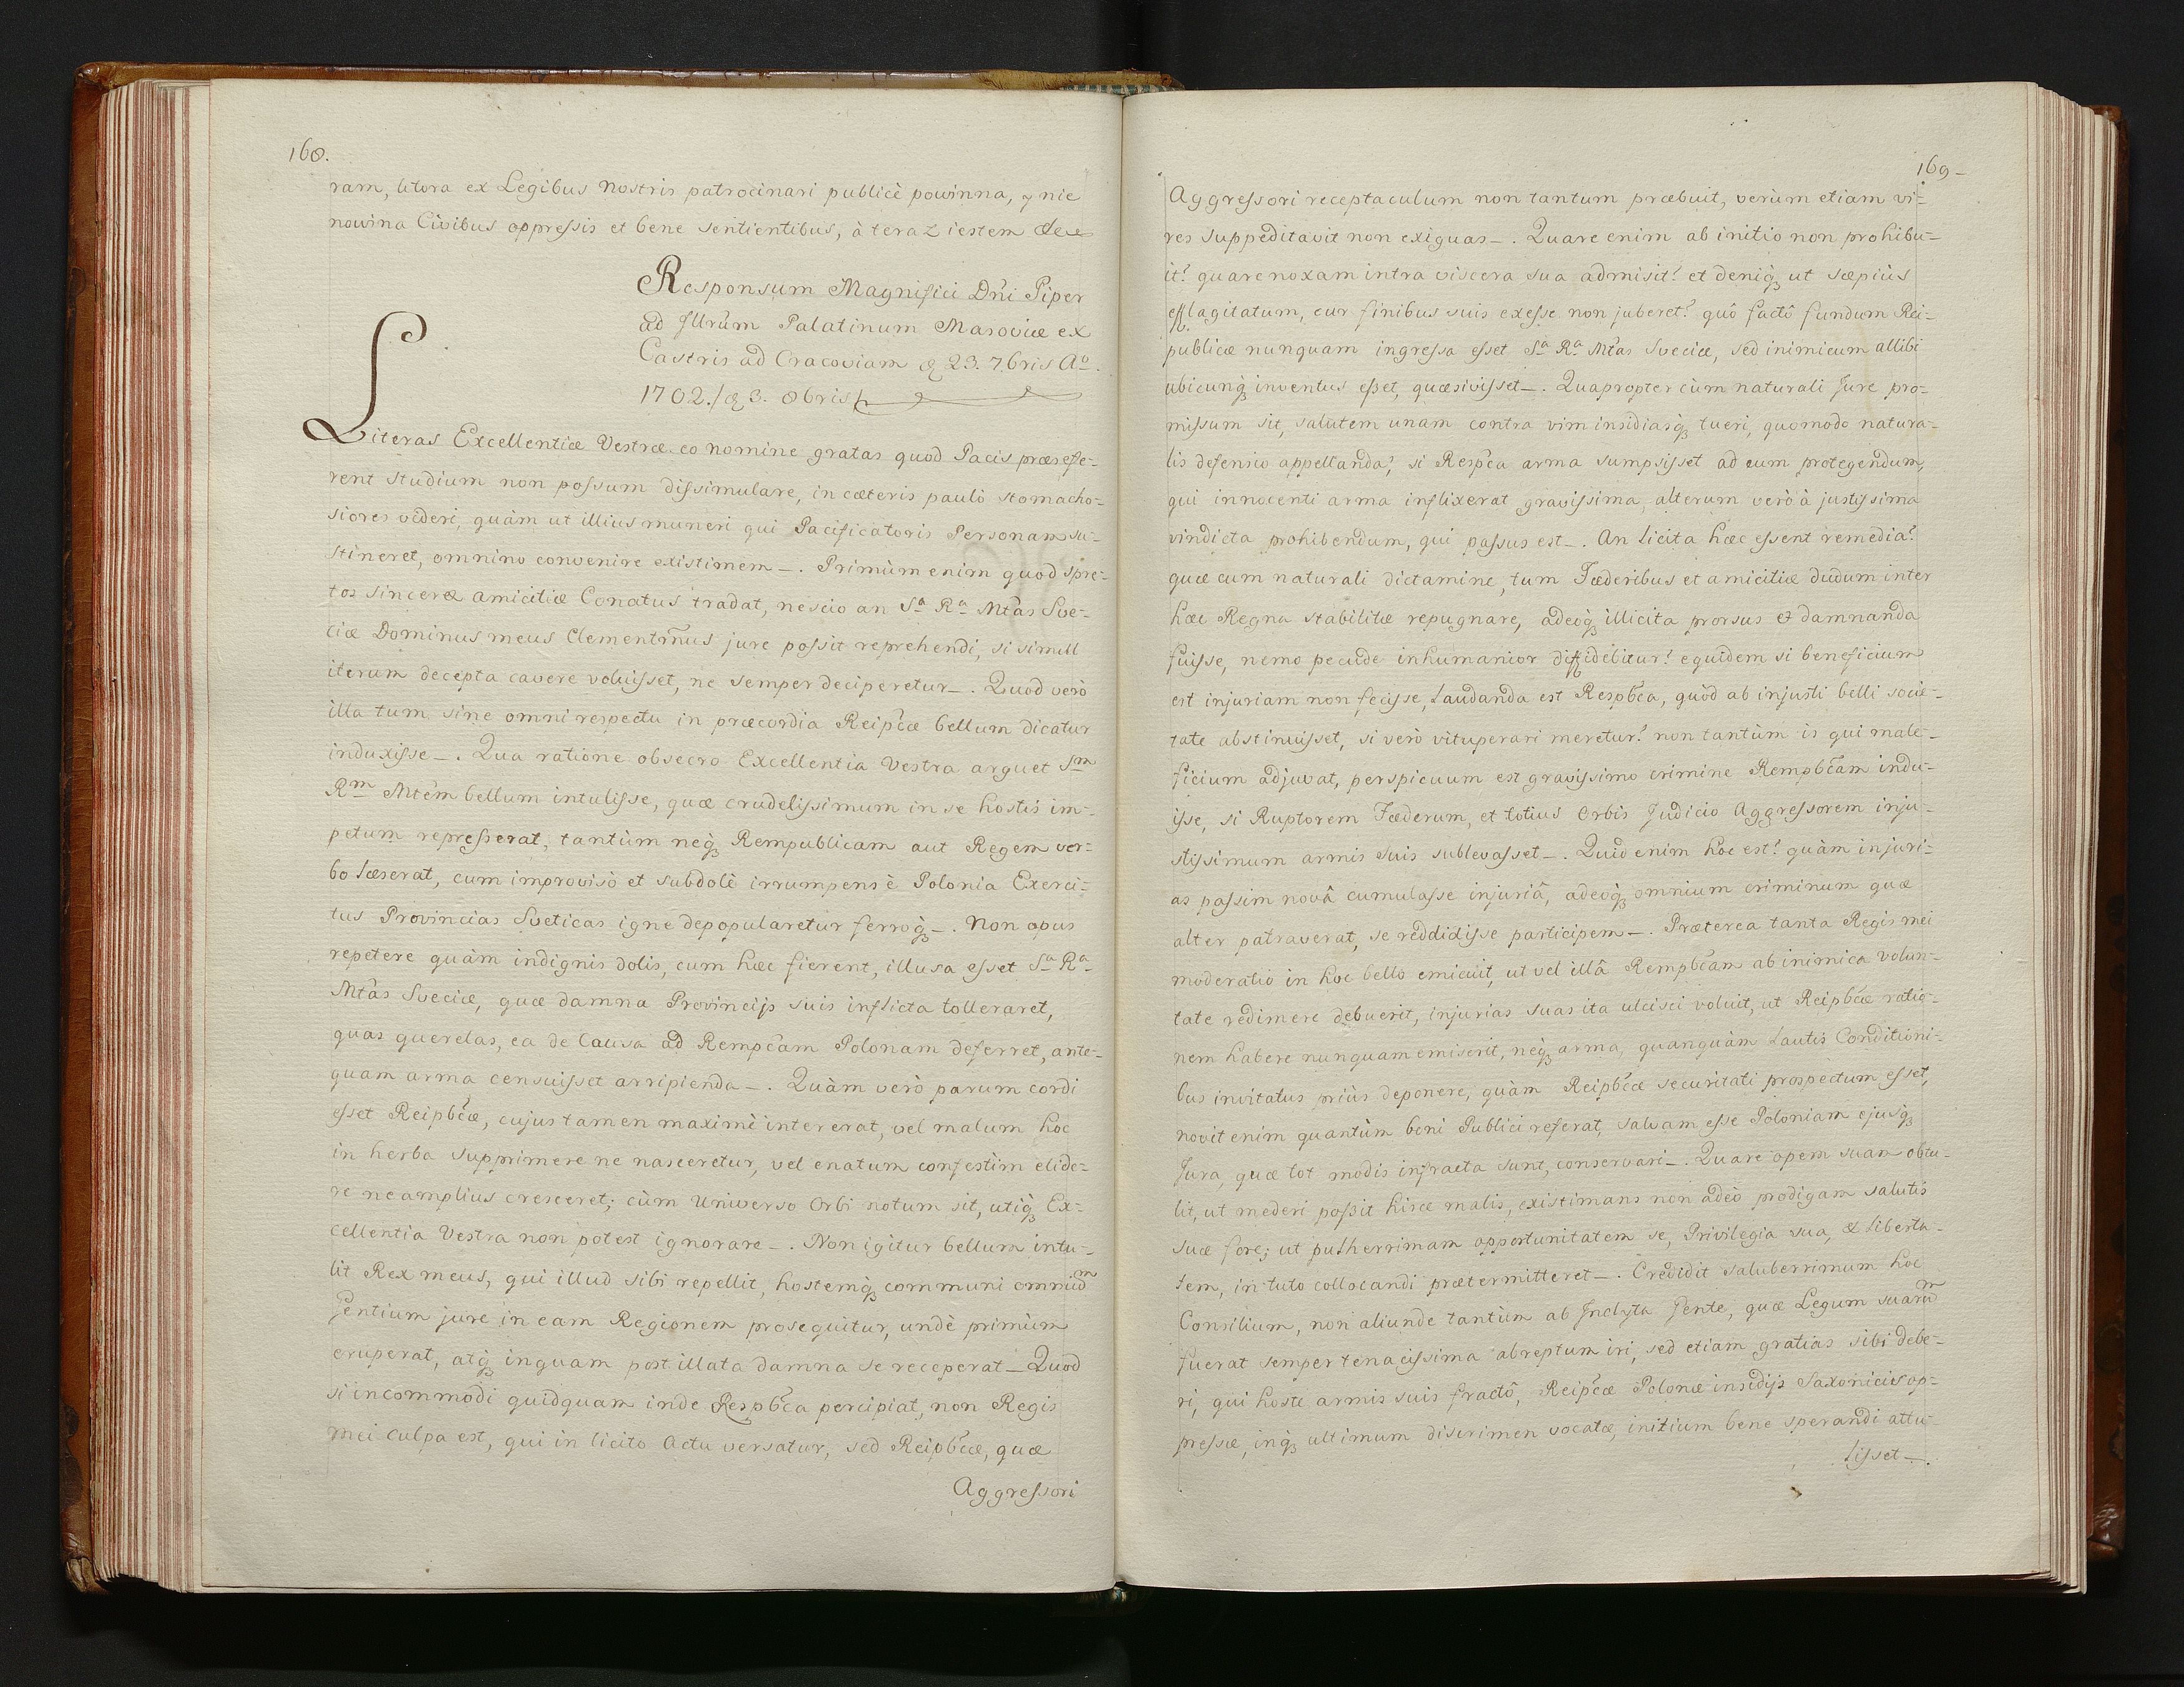 168.
ram, litora ex Legibus nostris patrocinari publicè powinna, y nie
nowina Civibus oppressis et bene sentientibus, à teraz iestem &c
Responsum Magnifici Dñi Piper
ad Jllrũm Palatinum Masoviæ ex
Castris ad Cracoviam d. 23. 7.bris Aº.
1702. /d. 3. 8bris/
Literas Excellentiæ Vestræ eo nomine gratas quod Pacis præsefe-
rent studium non possum dissimulare, in cæteris paulò stomacho-
siores videri, quàm ut illius muneri qui Pacificatoris Personam su-
stineret, omnino convenire existimem_. Primùm enim quod spre-
tos sinceræ amicitiæ Conatus tradat, nescio an Sª Rª Mtãs Sve-
ciæ Dominus meus Clementm̃us jure possit reprehendi, si simul
iterum decepta cavere voluisset, ne semper deciperetur_. Quod verò
illa tum sine omni respectu in præcordia Reipcæ bellum dicatur
induxisse_. Qua ratione obsecro Excellentia Vestra arguet Sm
Rm Mtẽm bellum intulisse, quæ crudelissimum in se hostis im-
petum represserat, tantùm neq3 Rempublicam aut Regem ver-
bo læserat, cum improvisò et subdolè irrumpens è Polonia Exerci-
tus Provincias Sveticas igne depopularetur ferroq3_. Non opus
repetere quàm indignis dolis, cum hæc fierent, illusa esset Sª Rª
Mtãs Sveciæ, quæ damna Provincijs suis inflicta tolleraret,
quas querelas, ea de Causa ad Rempcam Polonam deferret, ante-
quam arma censuisset arripienda_. Quàm verò parum cordi
esset Reipbcæ, cujus tamen maximè intererat, vel malum hoc
in herba supprimere ne nasceretur, vel enatum confestim elide-
re ne amplius cresceret; cùm Universo Orbi notum sit, utiq3 Ex-
cellentia Vestra non potest ignorare_. Non igitur bellum intu-
lit Rex meus, qui illud sibi repellit, hostemq3 communi omniũm
Gentium jure in eam Regionem prosequitur, undè primùm
eruperat, atq3 in quam post illata damna se receperat_ Quod
si incommodi quidquam inde Respbca percipiat, non Regis
mei culpa est, qui in licito Actu versatur, sed Reipbcæ, quæ
Aggressori
169_
Aggressori receptaculum non tantum præbuit, verùm etiam vi-
res suppeditavit non exiguas_. Quare enim ab initio non prohibu-
it? quare noxam intra viscera sua admisit? et deniq3 ut sæpiùs
efflagitatum, cur finibus suis exesse non juberet? quô factô fundum Rei-
publicæ nunquam ingressa esset Sª Rª Mtãs Sveciæ, sed inimicum allibi
ubicunq3 inventus esset, quæsivisset_. Quapropter cùm naturali Jure pro-
missum sit, salutem unam contra vim insidiasq3 tueri, quomodo natura-
lis defensio appellanda? si Respca arma sumpsisset ad eum protegendum,
qui innocenti arma inflixerat gravissima, alterum verò à justissima
vindicta prohibendum, qui passus est_. An licita hæc essent remedia?
quæ cum naturali dictamine, tum Fœderibus et amicitiæ dudum inter
hæc Regna stabilitæ repugnare, adeoq3 illicita prorsus et damnanda
fuisse, nemo pecude inhumanior diffidebitur? equidem si beneficium
est injuriam non fecisse, Laudanda est Respbca, quòd ab injusti belli socie-
tate abstinuisset, si verò vituperari meretur? non tantùm is qui male-
ficium adjuvat, perspicuum est gravissimo crimine Rempbcam indu-
isse, si Ruptorem Fœderum, et totius Orbis Judicio Aggressorem inju-
stissimum armis suis sublevasset_. Quid enim hoc est? quàm injuri-
as passim novâ cumulasse injuriâ, adeoq3 omnium criminum quæ
alter patraverat, se reddidisse participem_. Præterea tanta Regis mei
moderatio in hoc bello emicuit, ut vel illâ Rempbcam ab inimica volun-
tate redimere debuerit, injurias suas ita ulcisci voluit, ut Reipbcæ ratio-
nem habere nunquam emiserit, neq3 arma, quanquàm Lautis Conditioni-
bus invitatus priùs deponere, quàm Reipbcæ securitati prospectum esset,
novit enim quantùm boni Publici referat, salvam esse Poloniam ejusq3
Jura, quæ tot modis infracta sunt, conservari_. Quare opem suam obtu-
lit, ut mederi possit hisce malis, existimans non adeò prodigam salutis
suæ fore; ut pulherrimam opportunitatem se, Privilegia sua, & Liberta-
tem, in tuto collocandi prætermitteret_. Credidit saluberrimum hoc
Consilium, non aliunde tantùm ab Jnclyta Gente, quæ Legum suarũm
fuerat semper tenacissima abreptum iri, sed etiam gratias sibi debe-
ri, qui hoste armis suis fractô, Reipcæ Polonæ insidijs Saxonicis op-
pressæ, inq3 ultimum discrimen vocatæ, initium bene sperandi attu-
lisset_.